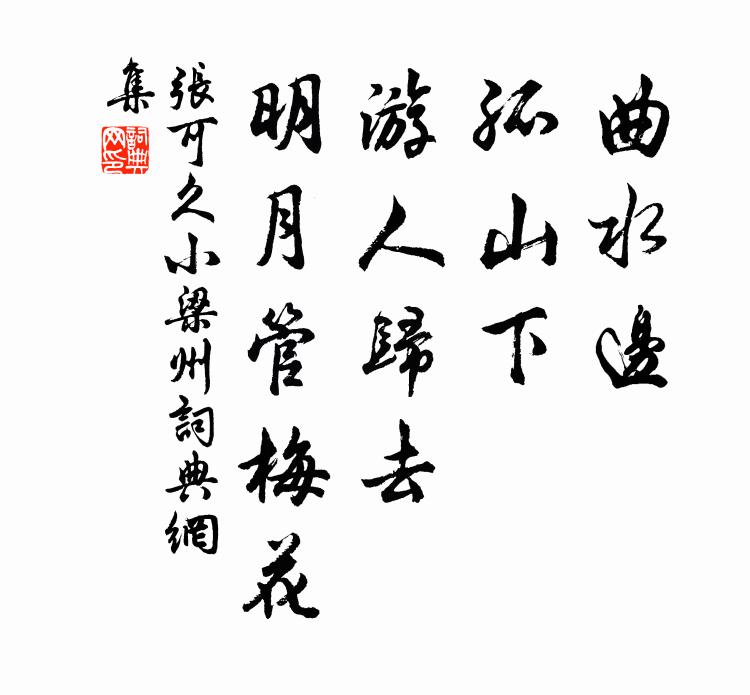 曲水邊
孤山下
游人歸去
明月管梅花
張可久小梁州詞典網
集
詞典
网印